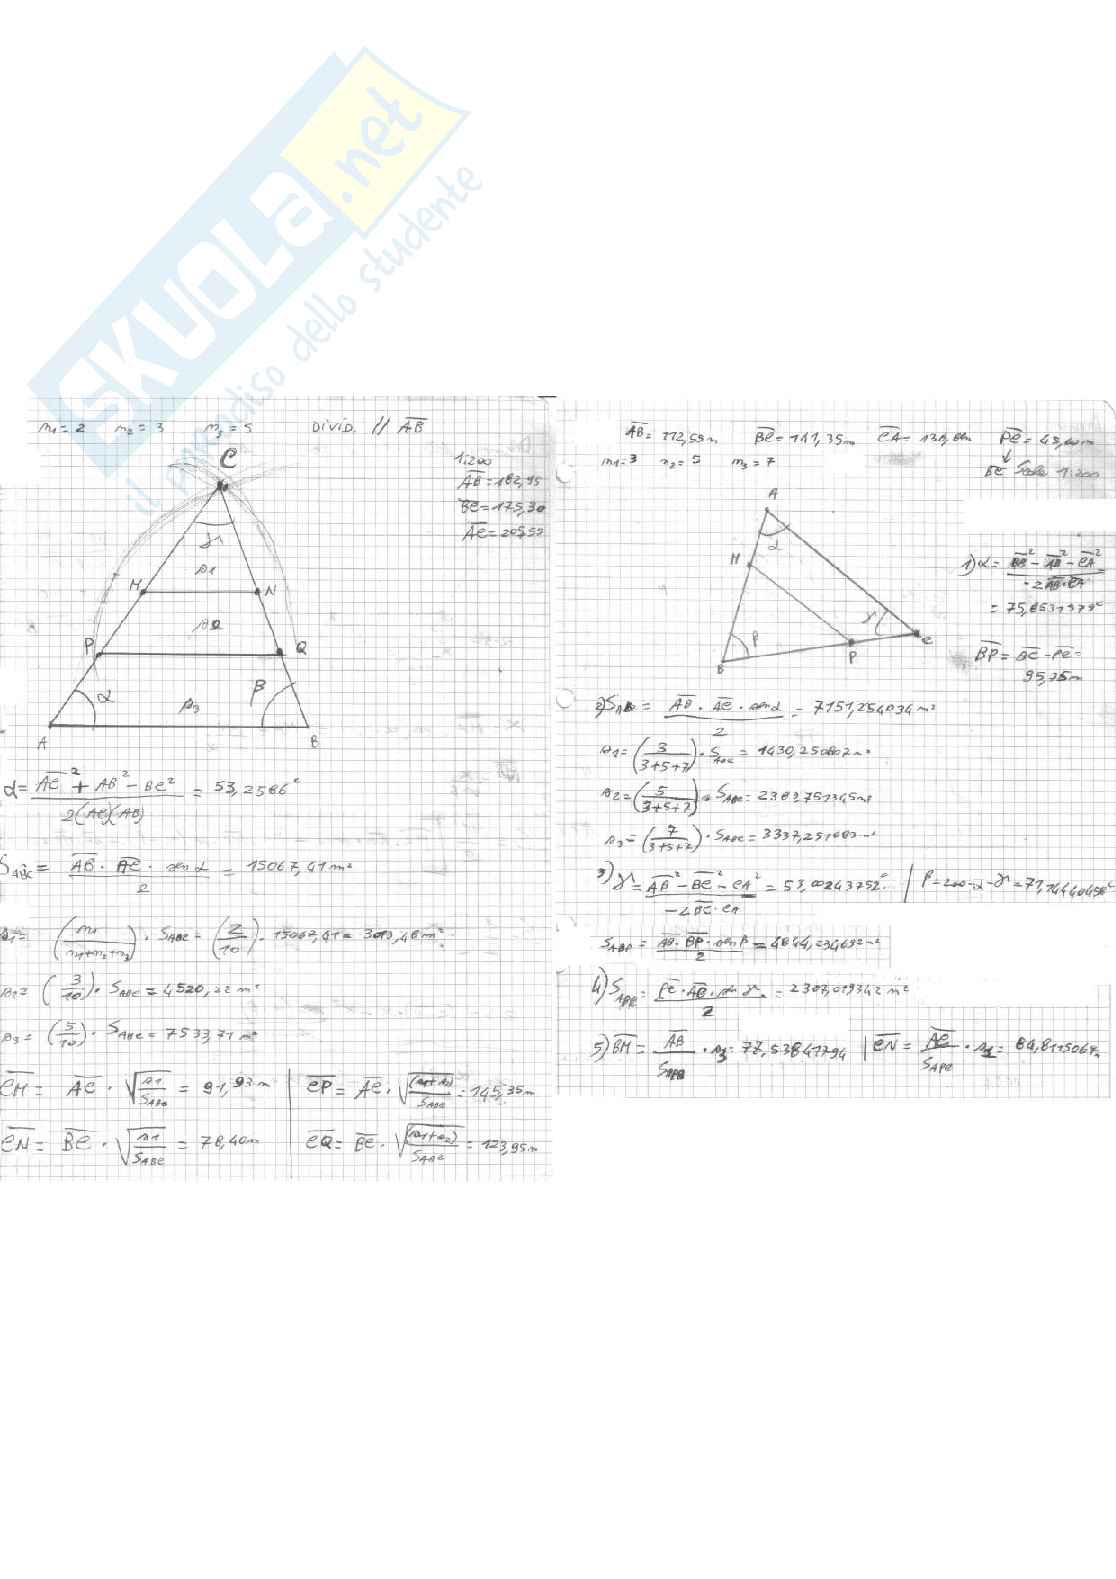 SKUOLA.net
il paradiso dello studente
m1 = 2 m2 = 3 m3 = 5 DIVID. // AB
1:200
AB = 182,95
BC = 175,30
AC = 205,57
C
γ1
s1
M N
s2
P Q
α β
s3
A B
α = AC² + AB² - BC² / 2(AC)(AB) = 53,2586ᶜ
S ABC = AB · AC · sen α / 2 = 15067,41 m²
s1 = (m1 / m1+m2+m3) · S ABC = (2/10) · 15067,41 = 3013,48 m²
s2 = (3/10) · S ABC = 4520,22 m²
s3 = (5/10) · S ABC = 7533,71 m²
CM = AC · √(s1 / S ABC) = 91,93 m | CP = AC · √((s1+s2) / S ABC) = 145,35 m
CN = BC · √(s1 / S ABC) = 78,40 m | CQ = BC · √((s1+s2) / S ABC) = 123,95 m
AB = 112,59 m BC = 141,35 m CA = PC = 45,60 m
m1 = 3 m2 = 5 m3 = 7 BC Scala 1:200
A
α
M
γ
β
B P C
1) α = BC² - AB² - CA² / -2 AB · CA
BP = BC - PC =
95,75 m
2) S = AB · AC · sen α / 2 = 7151,254034 m²
s1 = (3 / 3+5+7) · S ABC = 1430,250802 m²
s2 = (5 / 3+5+7) · S ABC = 2383,751345 m²
s3 = (7 / 3+5+7) · S ABC = 3337,251883 m²
3) γ = AB² - BC² - CA² / -2 BC · CA = 53,00243752ᶜ | β = 200 - α - γ =
S ABP = AB · BP · sen β / 2 =
4) S APC = PC · AC · sen γ / 2 = 2307,019342 m²
5) BM = AB / S ABP · s3 = 77,53841794 | CN = AC / S APC ·